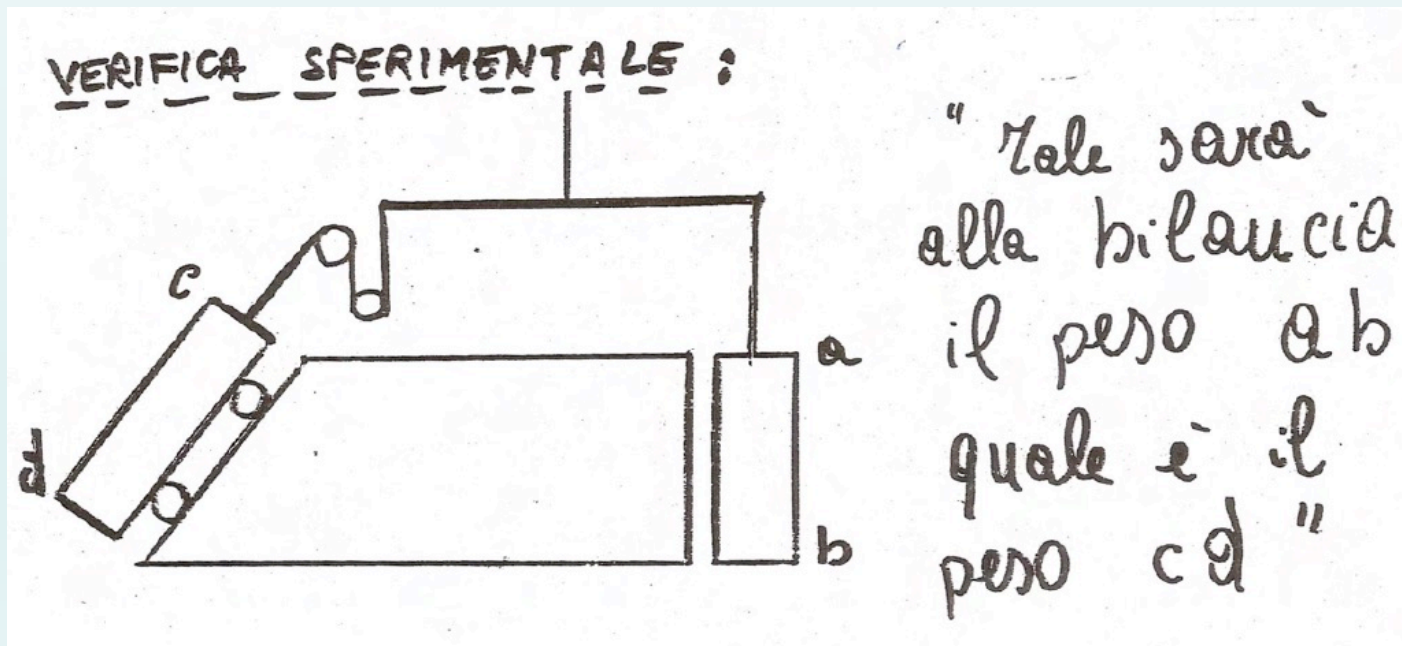 VERIFICA SPERIMENTALE :
" Tale sarà
alla bilancia
il peso ab
quale è il
peso cd "
c
d
a
b